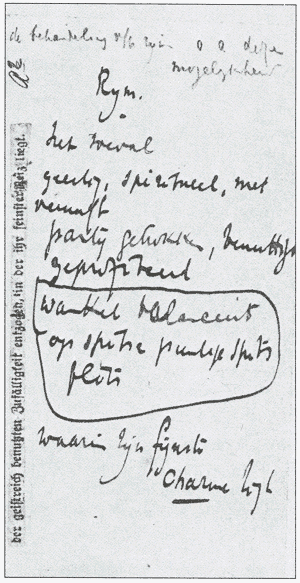 de behandeling v/h rijm o a deze
mogelykheid
Rym.
het toeval
geestig, spiritueel, met
vernuft
party getrokken, benuttigd
geprofiteerd
wankel balanceert
op spitse puntige spits
plots
waarin zijn fijnste
Charme ligt
der geistreich benutzten Zufälligkeit entzogen, in der ihr feinster Reiz liegt.